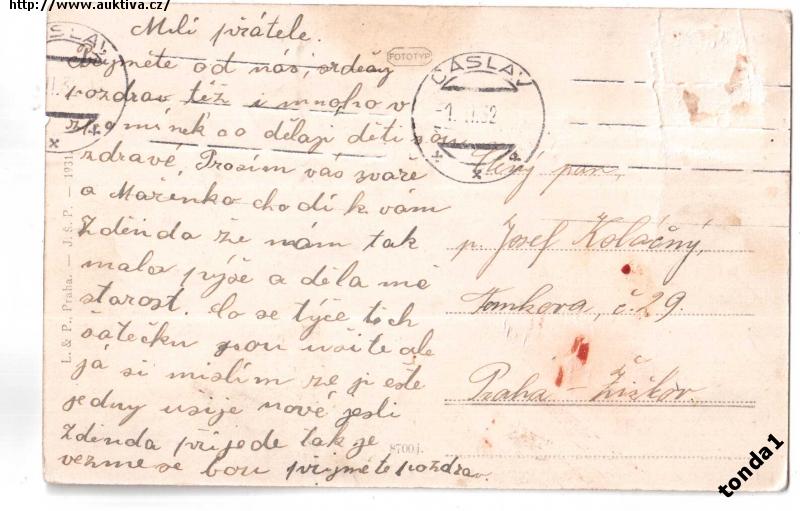 http://www.auktiva.cz/
Milí přátele.
Přijměte od nás, srdečný
pozdrav též i mnoho v
zpomínek co dělaji děti sou
zdravé, Prosím vás svaře
a Mařenko chodí k vám
Zdenda že nám tak
malo pýše a děla mě
starost. Co se týče těch
šátečku jsou ušite ale
já si mislím ze ješte
jedny usije nové jesli
Zdenda přijede tak je
vezme se bou přijměte pozdrav.
FOTOTYP
ČÁSLAV
ČÁSLAV
L. & P., Praha. — J. Š. P. — 1931.
8700 j.
Ctěný pan,
p. Josef Koláčný,
Tomkova, č. 29.
Praha - Žižkov.
tonda1